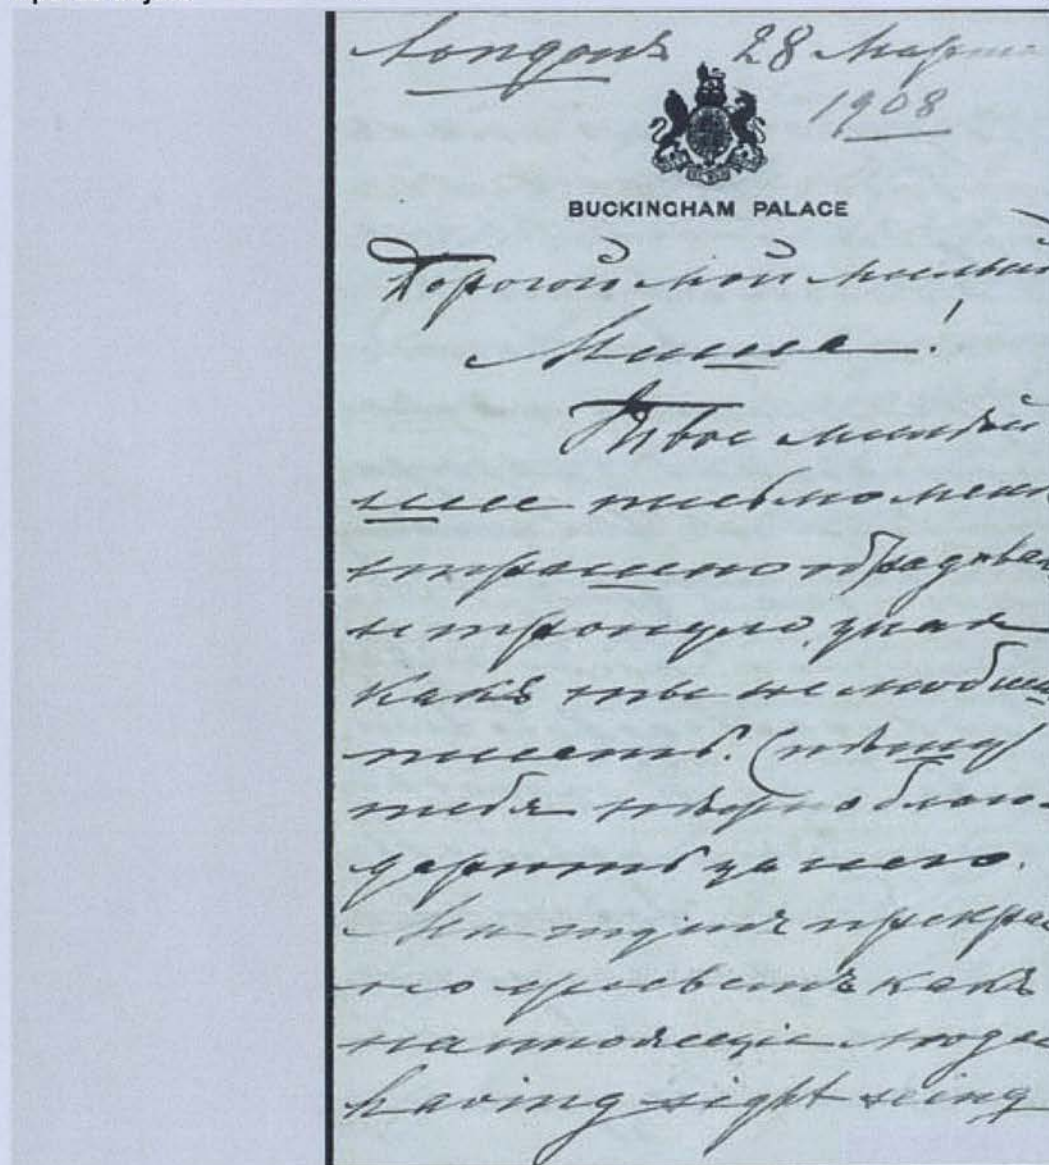 Лондонъ 28 Марта
1908
BUCKINGHAM PALACE
Дорогой мой милый
Миша!
Твое милѣй
шее письмо меня
страшно обрадовал
и тронуло, зная
какъ ты не любишь
писать. Спѣшу
тебя нѣжно благо-
дарить за него.
Мы тутъ прекрас
но живемъ какъ
настоящіе люди
having sight seing